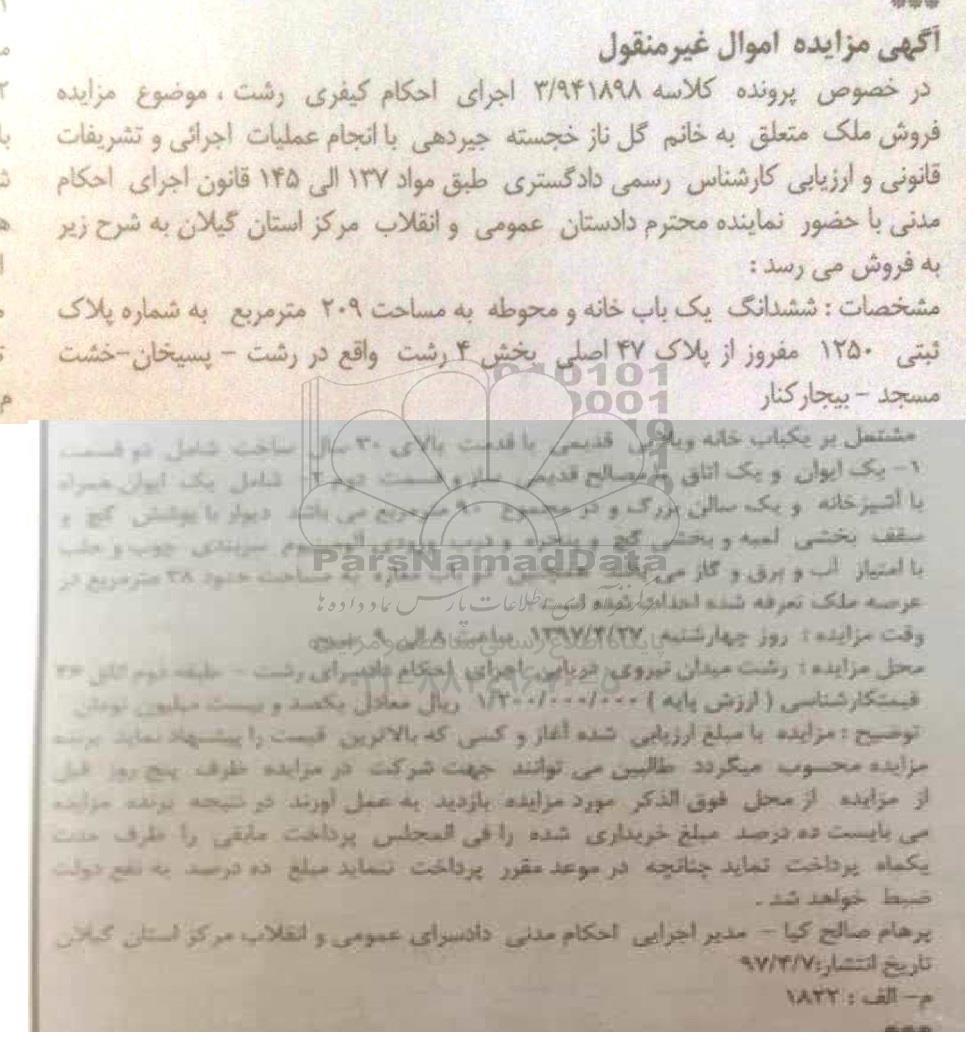 ***
آگهی مزایده اموال غیرمنقول
در خصوص پرونده کلاسه ۳/۹۴۱۸۹۸ اجرای احکام کیفری رشت ، موضوع مزایده
فروش ملک متعلق به خانم گل ناز خجسته جیردهی با انجام عملیات اجرائی و تشریفات
قانونی و ارزیابی کارشناس رسمی دادگستری طبق مواد ۱۳۷ الی ۱۴۵ قانون اجرای احکام
مدنی با حضور نماینده محترم دادستان عمومی و انقلاب مرکز استان گیلان به شرح زیر
به فروش می رسد :
مشخصات : ششدانگ یک باب خانه و محوطه به مساحت ۲۰۹ مترمربع به شماره پلاک
ثبتی ۱۲۵۰ مفروز از پلاک ۴۷ اصلی بخش ۴ رشت واقع در رشت - پسیخان-خشت
مسجد - بیجارکنار
مشتمل بر یکباب خانه ویلایی قدیمی با قدمت بالای ۳۰ سال ساخت شامل دو قسمت
۱- یک ایوان و یک اتاق با مصالح قدیمی ساز و قسمت دوم ۲- شامل یک ایوان همراه
با آشپزخانه و یک سالن بزرگ و در مجموع ۹۰ مترمربع می باشد دیوار با پوشش گچ و
سقف بخشی لمبه و بخشی گچ و پنجره و درب ورودی آلومینیوم سربندی چوب و حلب
با امتیاز آب و برق و گاز می باشد همچنین دو باب مغازه به مساحت حدود ۳۸ مترمربع در
عرصه ملک تعرفه شده احداث شده است
وقت مزایده : روز چهارشنبه ۱۳۹۷/۴/۲۷ ساعت ۸ الی ۹ صبح
محل مزایده : رشت میدان نیروی دریایی اجرای احکام دادسرای رشت - طبقه دوم اتاق ۳۶
قیمتکارشناسی ( ارزش پایه ) ۱/۲۰۰/۰۰۰/۰۰۰ ریال معادل یکصد و بیست میلیون تومان
توضیح : مزایده با مبلغ ارزیابی شده آغاز و کسی که بالاترین قیمت را پیشنهاد نماید برنده
مزایده محسوب میگردد طالبین می توانند جهت شرکت در مزایده ظرف پنج روز قبل
از مزایده از محل فوق الذکر مورد مزایده بازدید به عمل آورند در نتیجه برنده مزایده
می بایست ده درصد مبلغ خریداری شده را فی المجلس پرداخت مابقی را ظرف مدت
یکماه پرداخت نماید چنانچه در موعد مقرر پرداخت ننماید مبلغ ده درصد به نفع دولت
ضبط خواهد شد .
پرهام صالح کیا - مدیر اجرایی احکام مدنی دادسرای عمومی و انقلاب مرکز استان گیلان
تاریخ انتشار:۹۷/۴/۷
م- الف : ۱۸۲۲
***
ParsNamadData